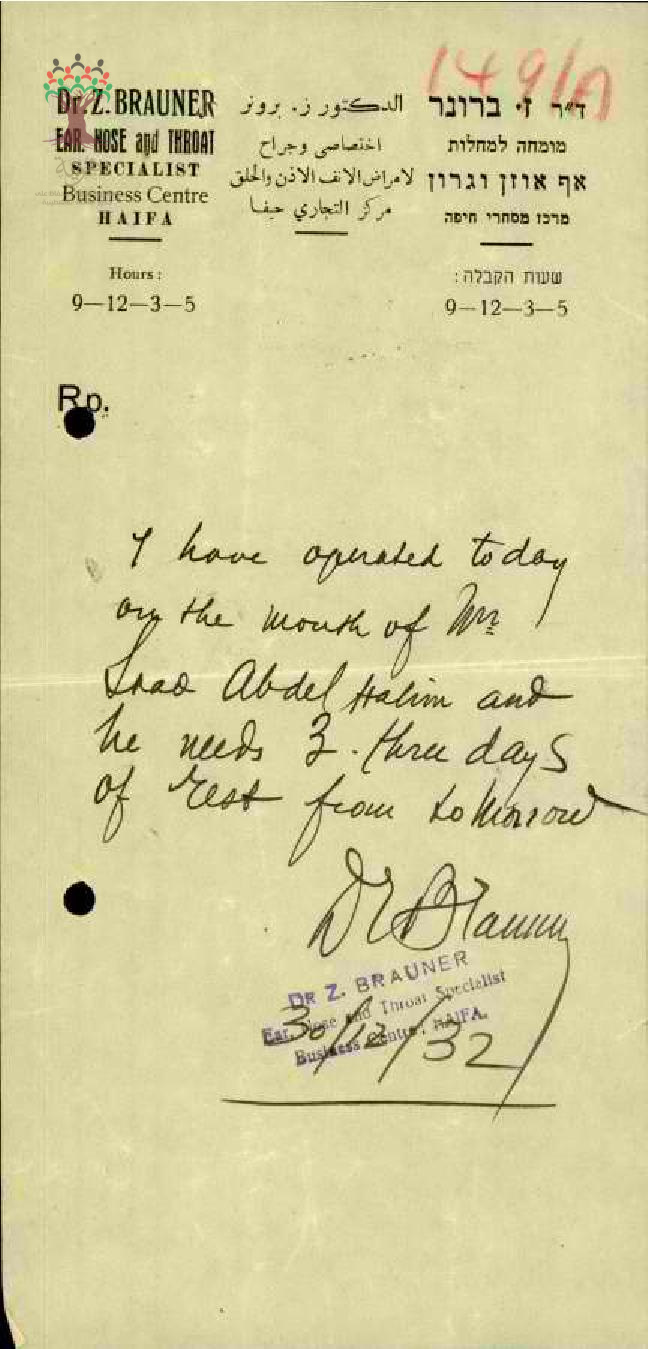 149/A
Dr. Z. BRAUNER
EAR, NOSE and THROAT
SPECIALIST
Business Centre
HAIFA
Hours:
9—12—3—5
الدكتور ز. برونر
اختصاصي وجراح
لامراض الانف الاذن والحلق
مركز التجاري حيفا
ד״ר ז׳ ברונר
מומחה למחלות
אף אוזן וגרון
מרכז מסחרי חיפה
שעות הקבלה:
9—12—3—5
Rp.
I have operated today
on the mouth of Mr
Abdel Halim and
he needs 3. three days
of rest from tomorrow
Dr Brauner
DR Z. BRAUNER
Ear, Nose and Throat Specialist
Business Centre, HAIFA.
30/12/32